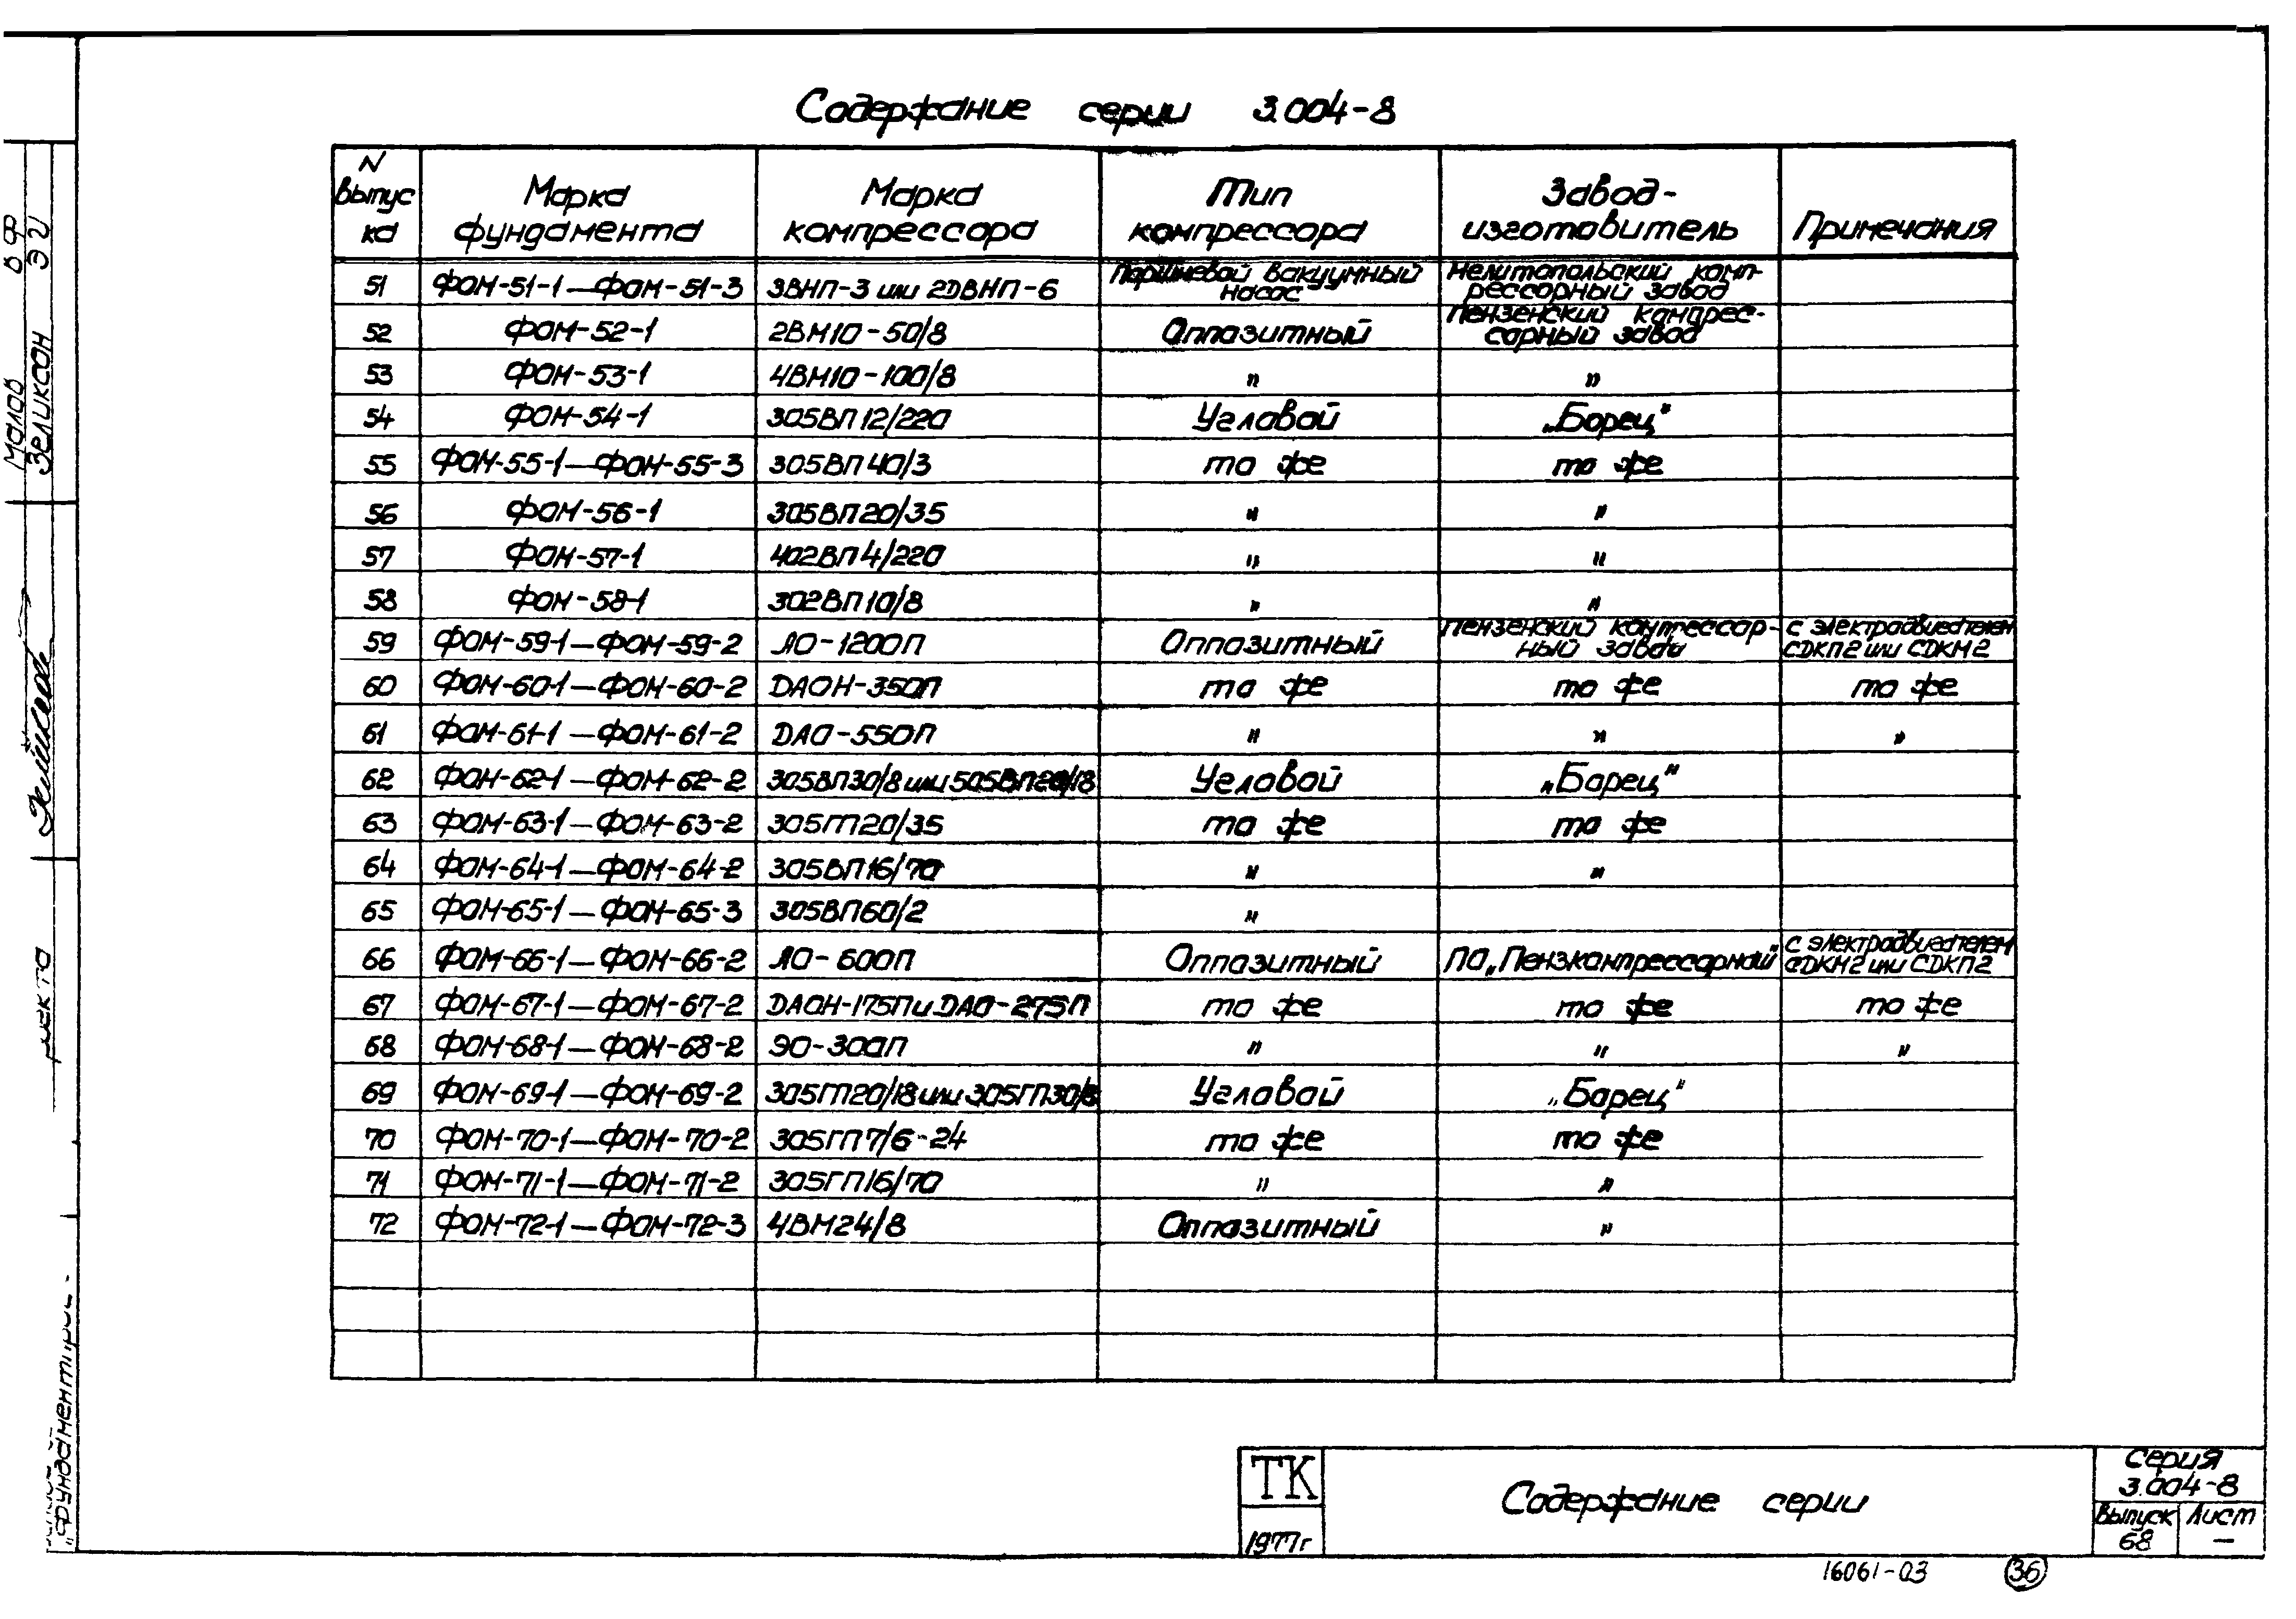 Содержание серии 3.004-8
N выпус ка | Марка фундамента | Марка компрессора | Тип компрессора | Завод-изготовитель | Примечания
51 | ФОМ-51-1—ФОМ-51-3 | 3ВНП-3 или 2ДВНП-6 | Поршневой вакуумный насос | Мелитопольский комп-рессорный завод
52 | ФОМ-52-1 | 2ВМ10-50/8 | Оппозитный | Пензенский компрес-сорный завод
53 | ФОМ-53-1 | 4ВМ10-100/8 | " | "
54 | ФОМ-54-1 | 305ВП12/220 | Угловой | „Борец"
55 | ФОМ-55-1—ФОМ-55-3 | 305ВП40/3 | то же | то же
56 | ФОМ-56-1 | 305ВП20/35 | " | "
57 | ФОМ-57-1 | 402ВП4/220 | " | "
58 | ФОМ-58-1 | 302ВП10/8 | " | "
59 | ФОМ-59-1—ФОМ-59-2 | АО-1200П | Оппозитный | Пензенский компрессор-ный завод | с электродвигателем СДКП2 или СДКМ2
60 | ФОМ-60-1—ФОМ-60-2 | ДАОН-350П | то же | то же | то же
61 | ФОМ-61-1—ФОМ-61-2 | ДАО-550П | " | " | "
62 | ФОМ-62-1—ФОМ-62-2 | 305ВП30/8 или 505ВП20/18 | Угловой | „Борец"
63 | ФОМ-63-1—ФОМ-63-2 | 305ГП20/35 | то же | то же
64 | ФОМ-64-1—ФОМ-64-2 | 305ВП16/70 | " | "
65 | ФОМ-65-1—ФОМ-65-3 | 305ВП60/2 | "
66 | ФОМ-66-1—ФОМ-66-2 | АО-600П | Оппозитный | ПО „Пензкомпрессормаш" | с электродвигателем СДКМ2 или СДКП2
67 | ФОМ-67-1—ФОМ-67-2 | ДАОН-175П и ДАО-275П | то же | то же | то же
68 | ФОМ-68-1—ФОМ-68-2 | ЭО-300П | " | " | "
69 | ФОМ-69-1—ФОМ-69-2 | 305ГП20/18 или 305ГП30/8 | Угловой | „Борец"
70 | ФОМ-70-1—ФОМ-70-2 | 305ГП7/6-24 | то же | то же
71 | ФОМ-71-1—ФОМ-71-2 | 305ГП16/70 | " | "
72 | ФОМ-72-1—ФОМ-72-3 | 4ВМ24/8 | Оппозитный | "
ТК
1977г
Содержание серии
Серия
3.004-8
Выпуск Лист
68 —
16061-03 36
Малов В Ф
Зеликсон Э И